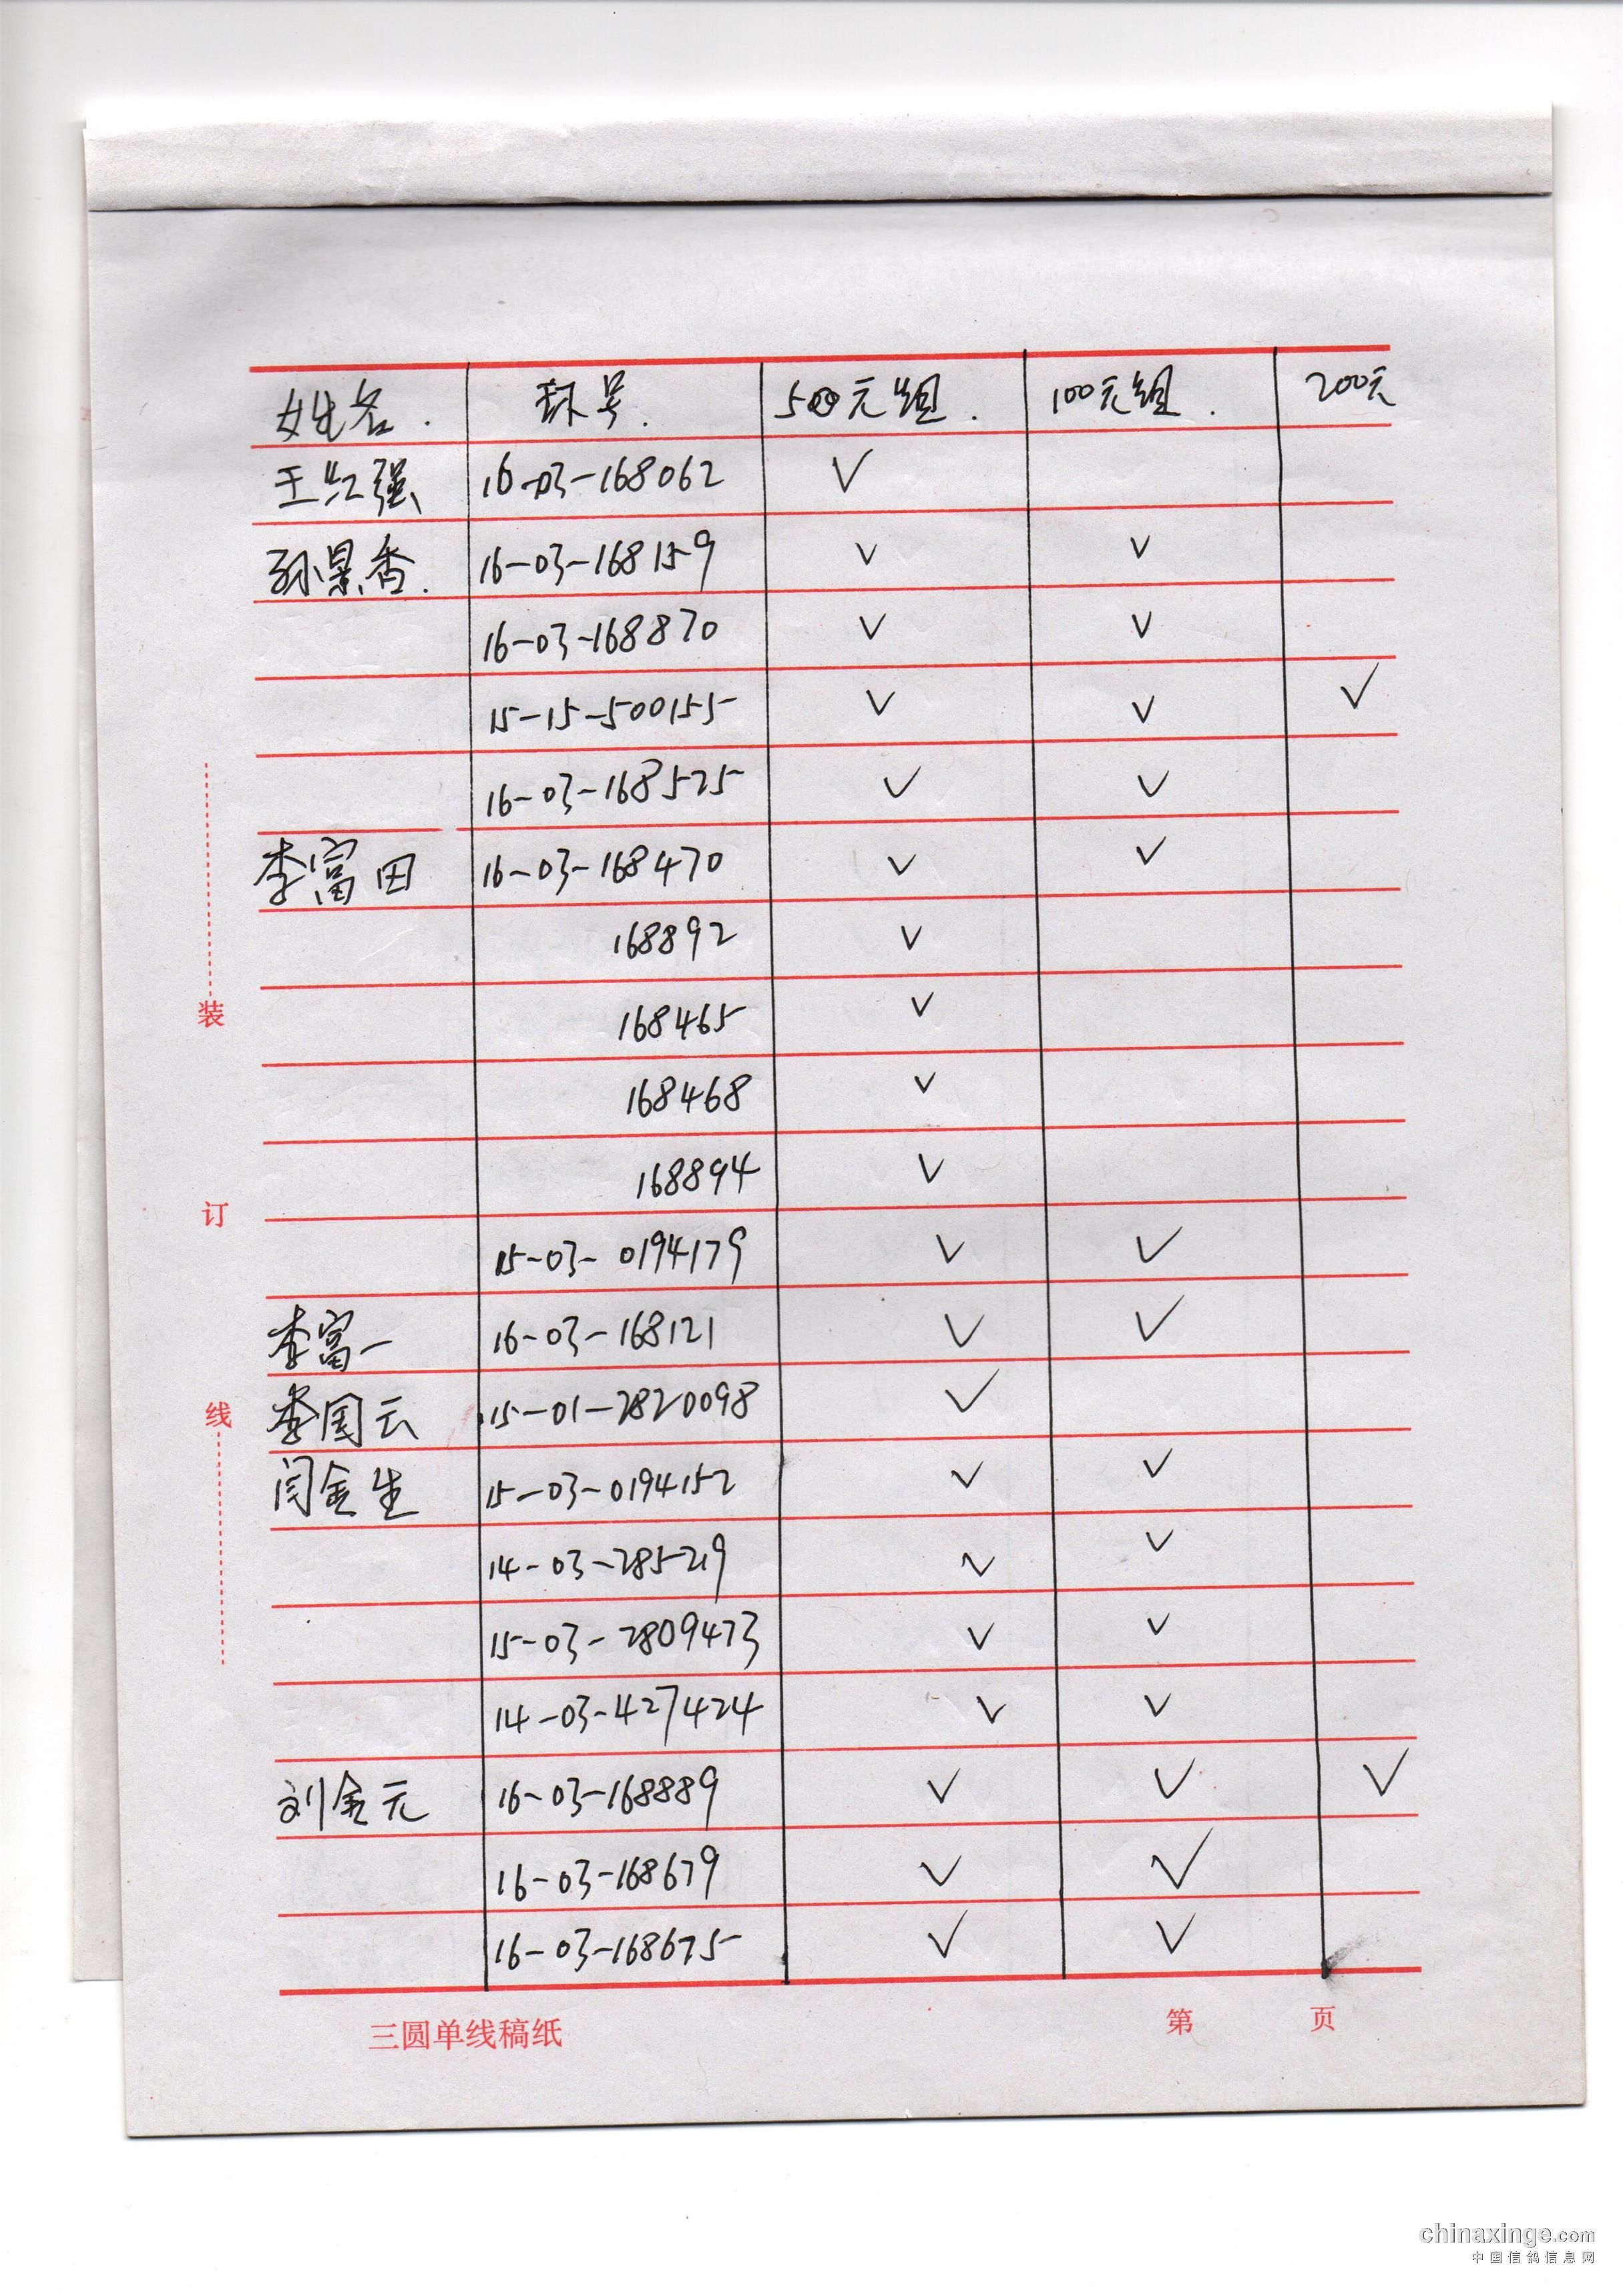 姓名. 环号. 500元组. 100元组. 200元
王兴强 16-03-168062 √
孙景香. 16-03-168159 √ √
16-03-168870 √ √
15-15-500155 √ √ √
16-03-168525 √ √
李富田 16-03-168470 √ √
168892 √
168465 √
168468 √
168894 √
15-03-0194179 √ √
李富一 16-03-168121 √ √
李国云 15-01-2820098 √
闫金生 15-03-0194152 √ √
14-03-285219 √ √
15-03-2809473 √ √
14-03-427424 √ √
刘金元 16-03-168889 √ √ √
16-03-168679 √ √
16-03-168675 √ √
装
订
线
三圆单线稿纸 第 页
chinaxinge.com
中国信鸽信息网